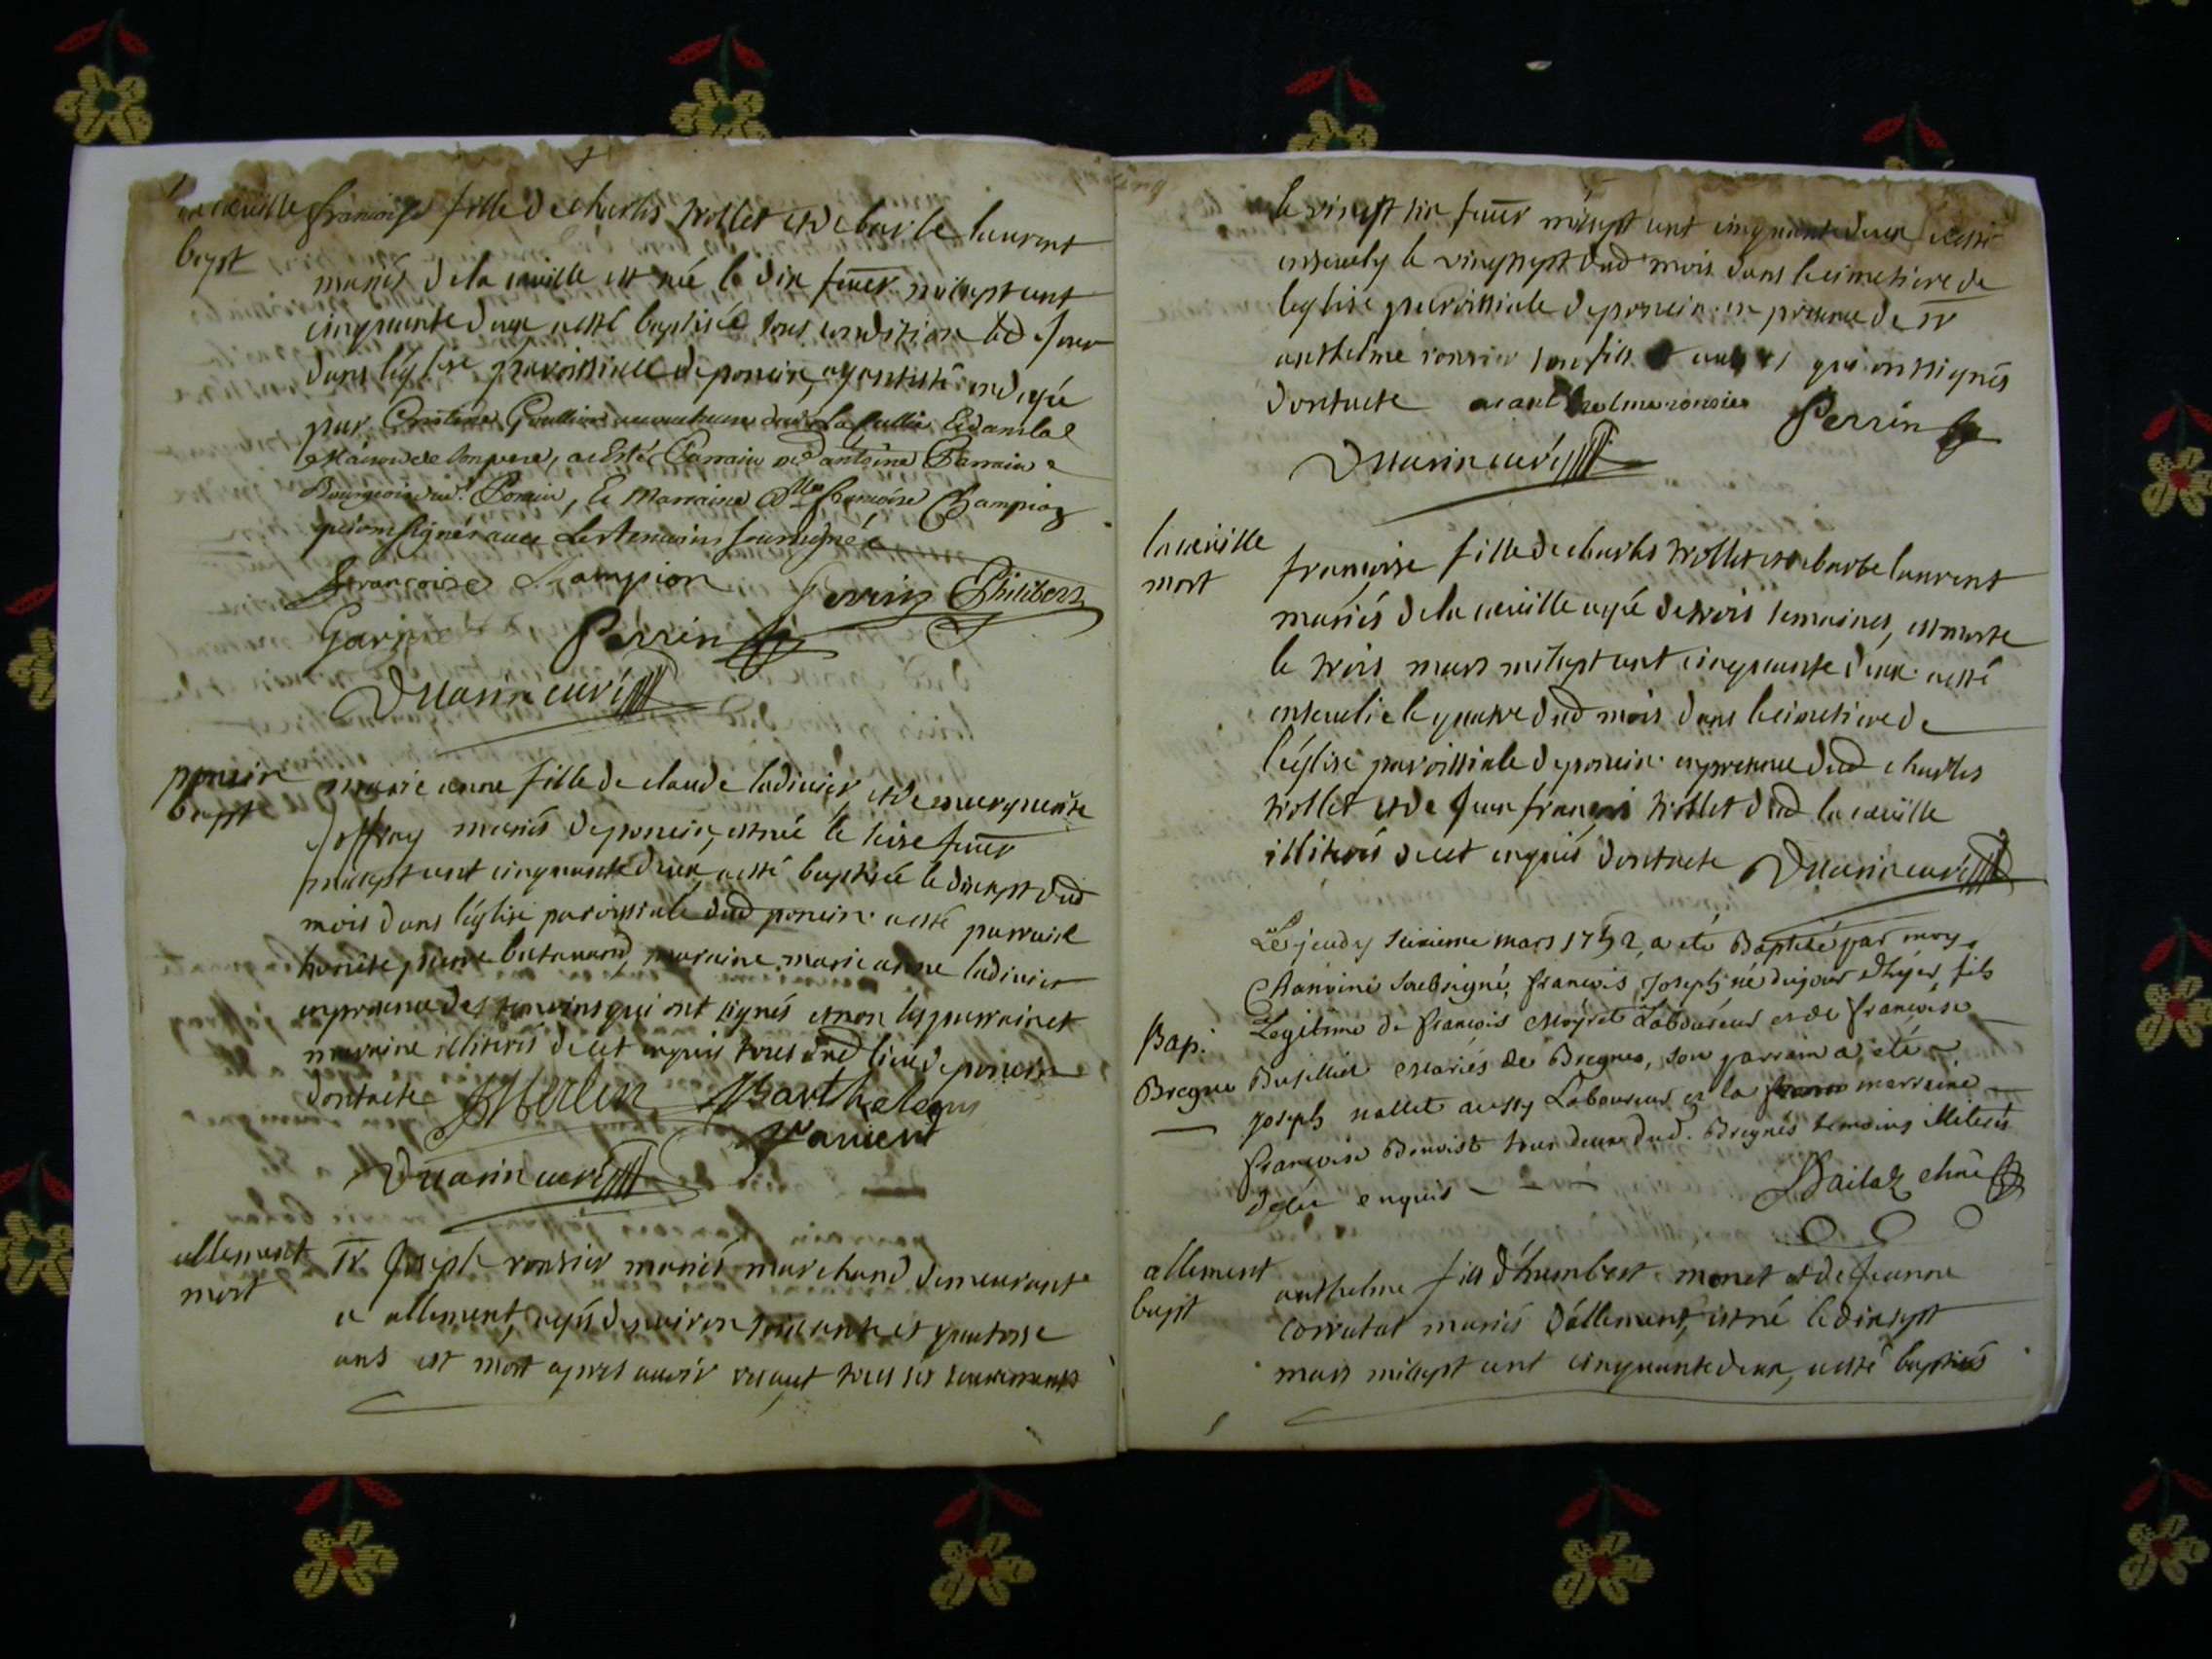 la cueille
bapt
françoise fille de charles trollet et de barbe laurent
mariés de la cueille est née le dix fever milsept cent
cinquante deux a esté baptisée sous condition led. jour
dans léglise paroissialle de poncin, ayant esté ondoyée
par accoucheuse dans la
Maison de son pere, a Esté Parrain sr antoine Perrain
Bourgeois dud. Poncin, Et Marraine Dlle francoise Champion
qui ont signés avec Les temoins soussignés
Françoise Champion Perrin Philibert
Garin Perrin
Duarin curé
poncin
bapt
marie anne fille de claude ladivier et de marguerite
Joffray mariés de poncin, est née le seise fever
milsept cent cinquante deux a esté baptisée le dixsept dud
mois dans léglise paroissiale dud poncin a esté parrain
honête pierre maraine marie anne ladivier
en presence des temoins qui ont signés et non les parrain et
maraine illiterés de cet enquis tous dud lieu de poncin
dont acte Merlin Barthelemy
Duarin curé
allement
mort
sr Joseph ronsier mariés marchand demeurant
a allement, agés denviron soixante et quatorse
ans est mort apres avoir reçeut tous ses sacrements
le vingt six fever milsept cent cinquante deux a esté
ensevely le vingt sept dud mois dans le cimetiere de
leglise paroissiale de poncin en presence de sr
anthelme ronsier son fils et qui ont signés
dont acte anthelme ronsier Perrin
Duarin curé
la cueille
mort
françoise fille de charles trollet et de barbe laurent
mariés de la cueille agée de trois semaines, est morte
le trois mars milsept cent cinquante deux a esté
ensevelie le quatre dud mois dans le cimetiere de
l'église paroissiale de poncin en presence dud charles
trollet et de Jean françois trollet dud la cueille
illiterés de cet enquis dont acte Duarin curé
Bap.
Bregne
Le jeudy seizieme mars 1752, a été Baptisé par moy
Chanoine soubsigné, francois Joseph né du jour d'hyer, fils
Legitime de francois Laboureur et de francoise
Busillet Mariés de Bregnes, son parrain a été
joseph nallet aussy Laboureur et la marraine
francoise Benoist tous deux dud. Bregnes temoins illiterés
de ce enquis - - -
Bailat chne
allement
bapt
anthelme fils d'humbert monet et de Jeanne
corratat mariés d'allement, est né le dixsept
mars milsept cent cinquante deux, a esté baptisés